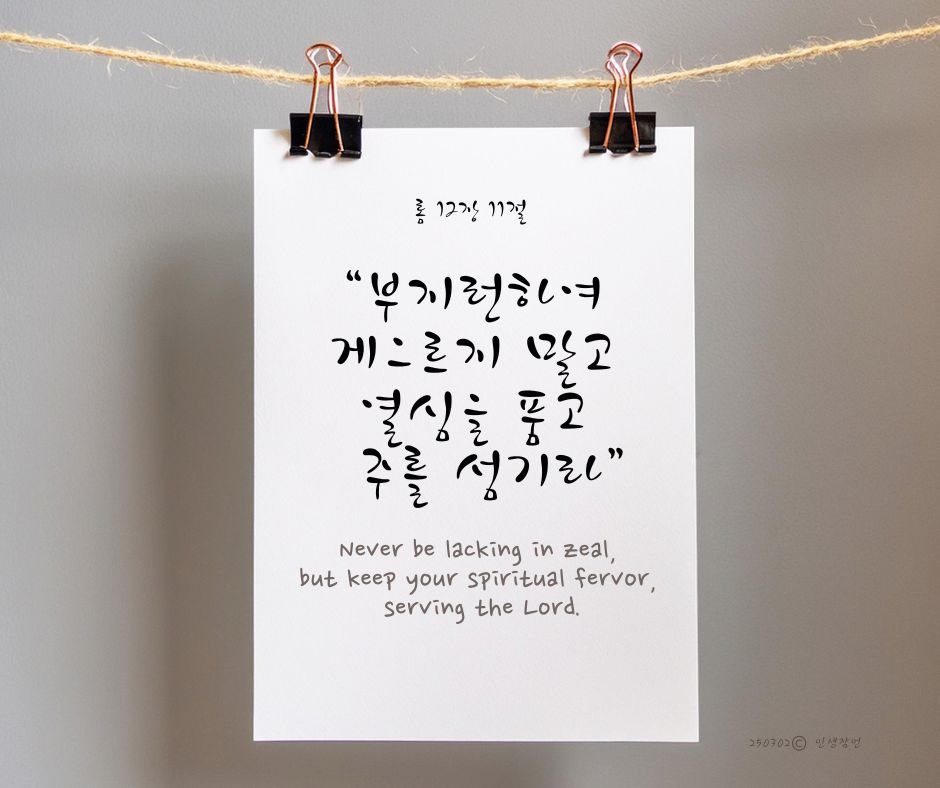 롬 12장 11절
“부지런하여
게으르지 말고
열심을 품고
주를 섬기라”
Never be lacking in zeal,
but keep your spiritual fervor,
serving the Lord.
250302© 인생잠언